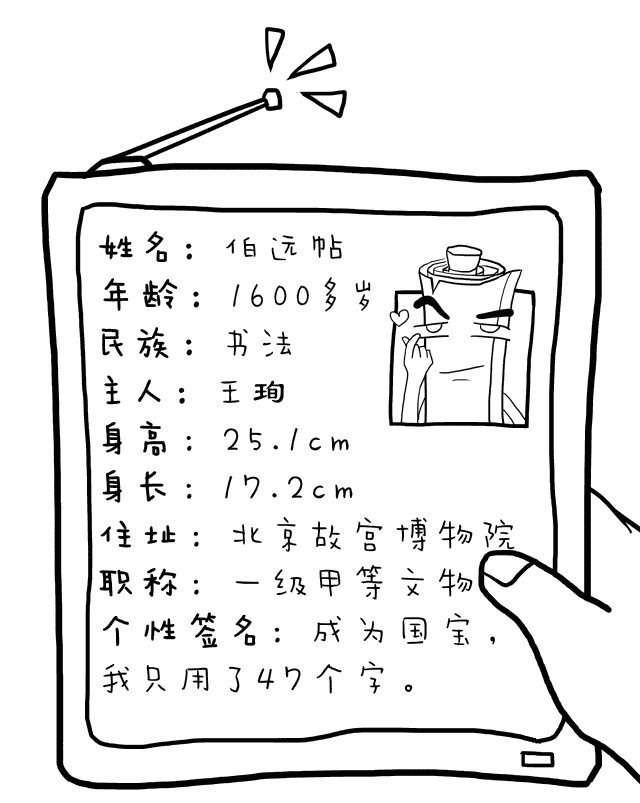 姓名：伯远帖
年龄：1600多岁
民族：书法
主人：王珣
身高：25.1cm
身长：17.2cm
住址：北京故宫博物院
职称：一级甲等文物
个性签名：成为国宝，
我只用了47个字。